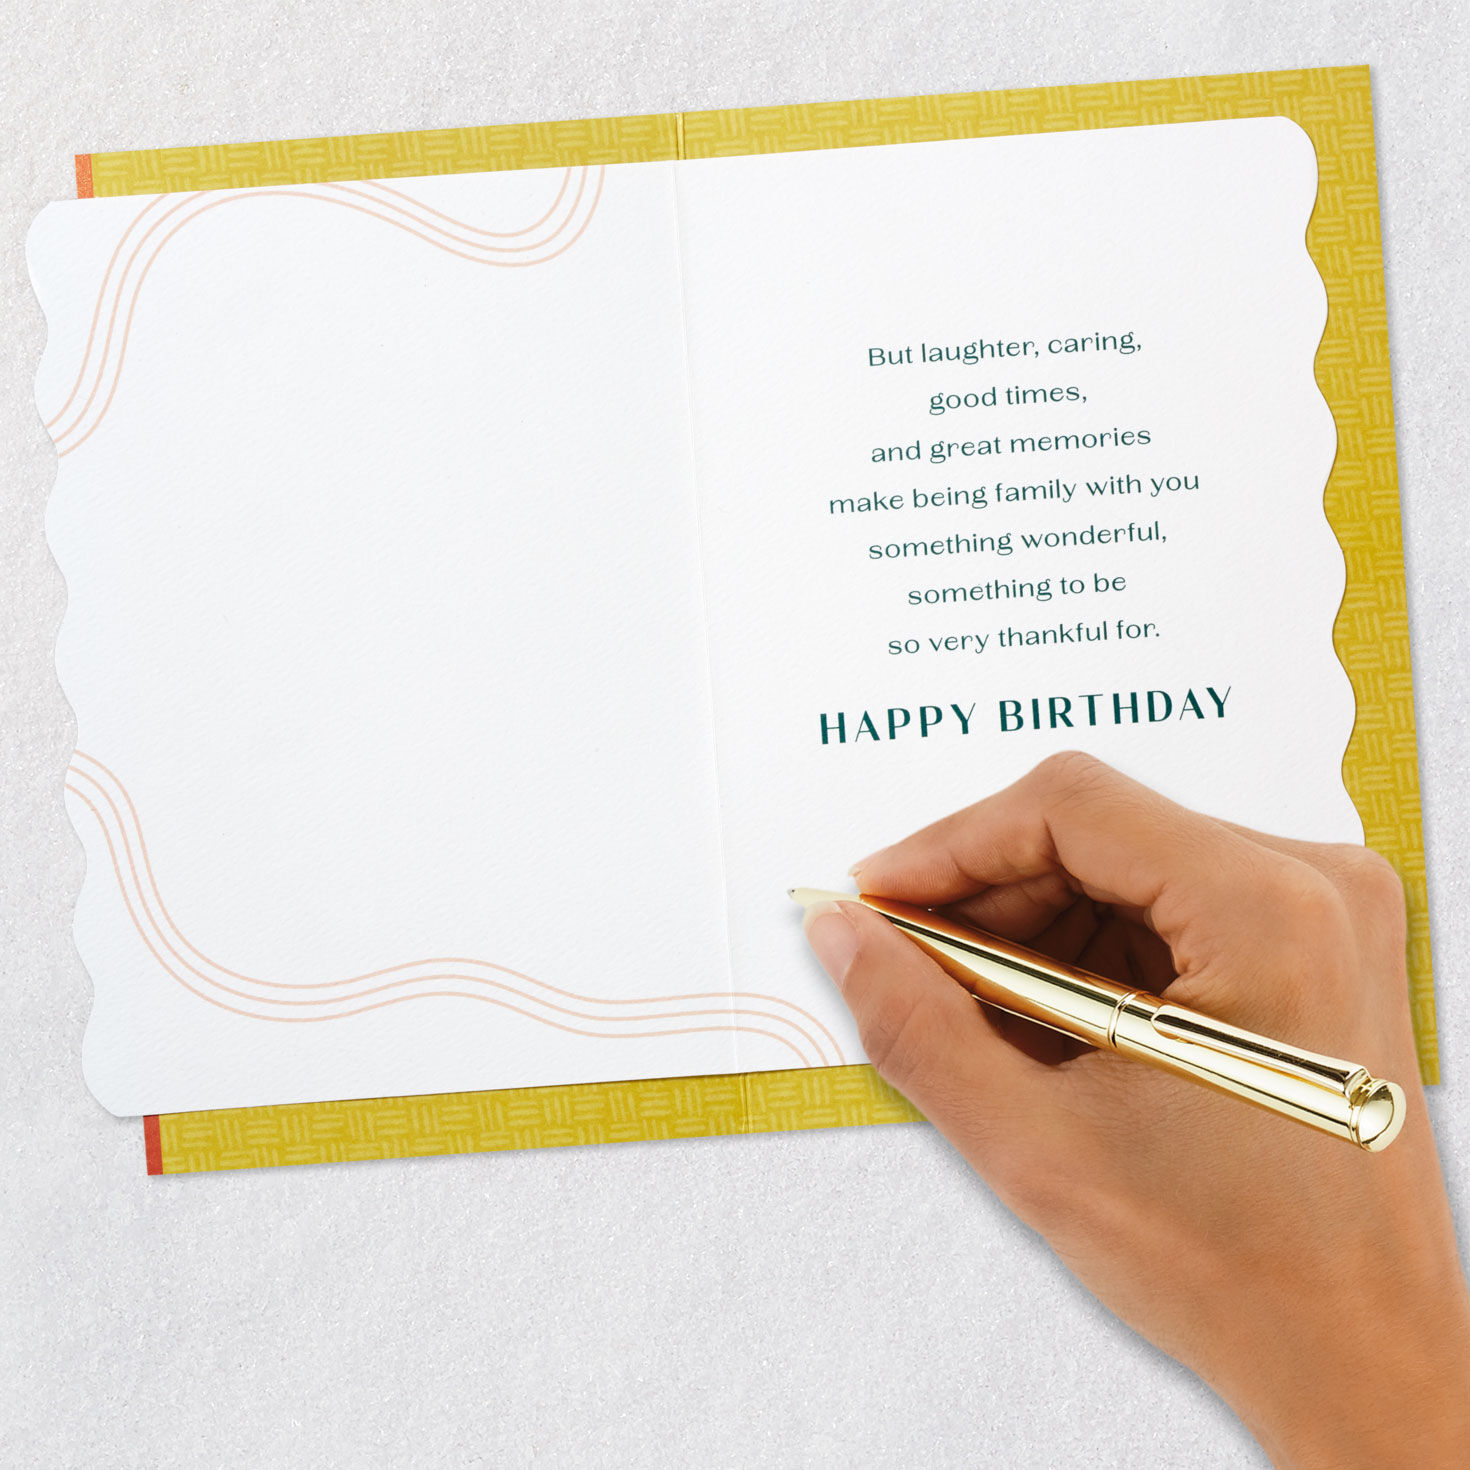 But laughter, caring,
good times,
and great memories
make being family with you
something wonderful,
something to be
so very thankful for.
HAPPY BIRTHDAY